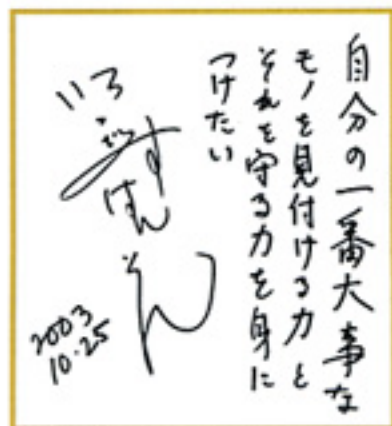 自分の一番大事な
モノを見付ける力と
それを守る力を身に
つけたい
2003
10.25